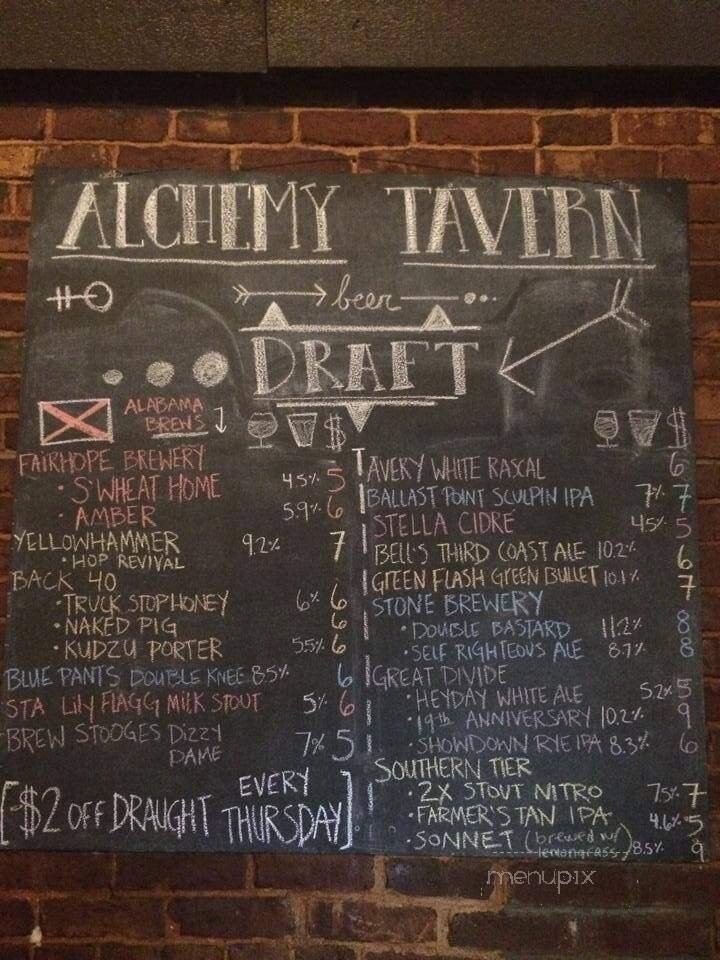 ALCHEMY TAVERN
beer
DRAFT
ALABAMA
BREWS
$
FAIRHOPE BREWERY
• S'WHEAT HOME 4.5% 5
• AMBER 5.9% 6
YELLOWHAMMER 9.2% 7
• HOP REVIVAL
BACK 40
• TRUCK STOP HONEY 6% 6
• NAKED PIG 6
• KUDZU PORTER 5.5% 6
BLUE PANTS DOUBLE KNEE 8.5% 6
STA LILY FLAGG MILK STOUT 5% 6
BREW STOOGES DIZZY
DAME 7% 5
[-$2 OFF DRAUGHT EVERY
THURSDAY]
$
AVERY WHITE RASCAL 6
BALLAST POINT SCULPIN IPA 7% 7
STELLA CIDRE 4.5% 5
BELL'S THIRD COAST ALE 10.2% 6
GREEN FLASH GREEN BULLET 10.1% 7
STONE BREWERY
• DOUBLE BASTARD 11.2% 8
• SELF RIGHTEOUS ALE 8.7% 8
GREAT DIVIDE
• HEYDAY WHITE ALE 5.2% 5
• 19th ANNIVERSARY 10.2% 9
• SHOWDOWN RYE IPA 8.3% 6
SOUTHERN TIER
• 2X STOUT NITRO 7.5% 7
• FARMER'S TAN IPA 4.6% 5
• SONNET (brewed w/
lemongrass) 8.5% 9
menupix